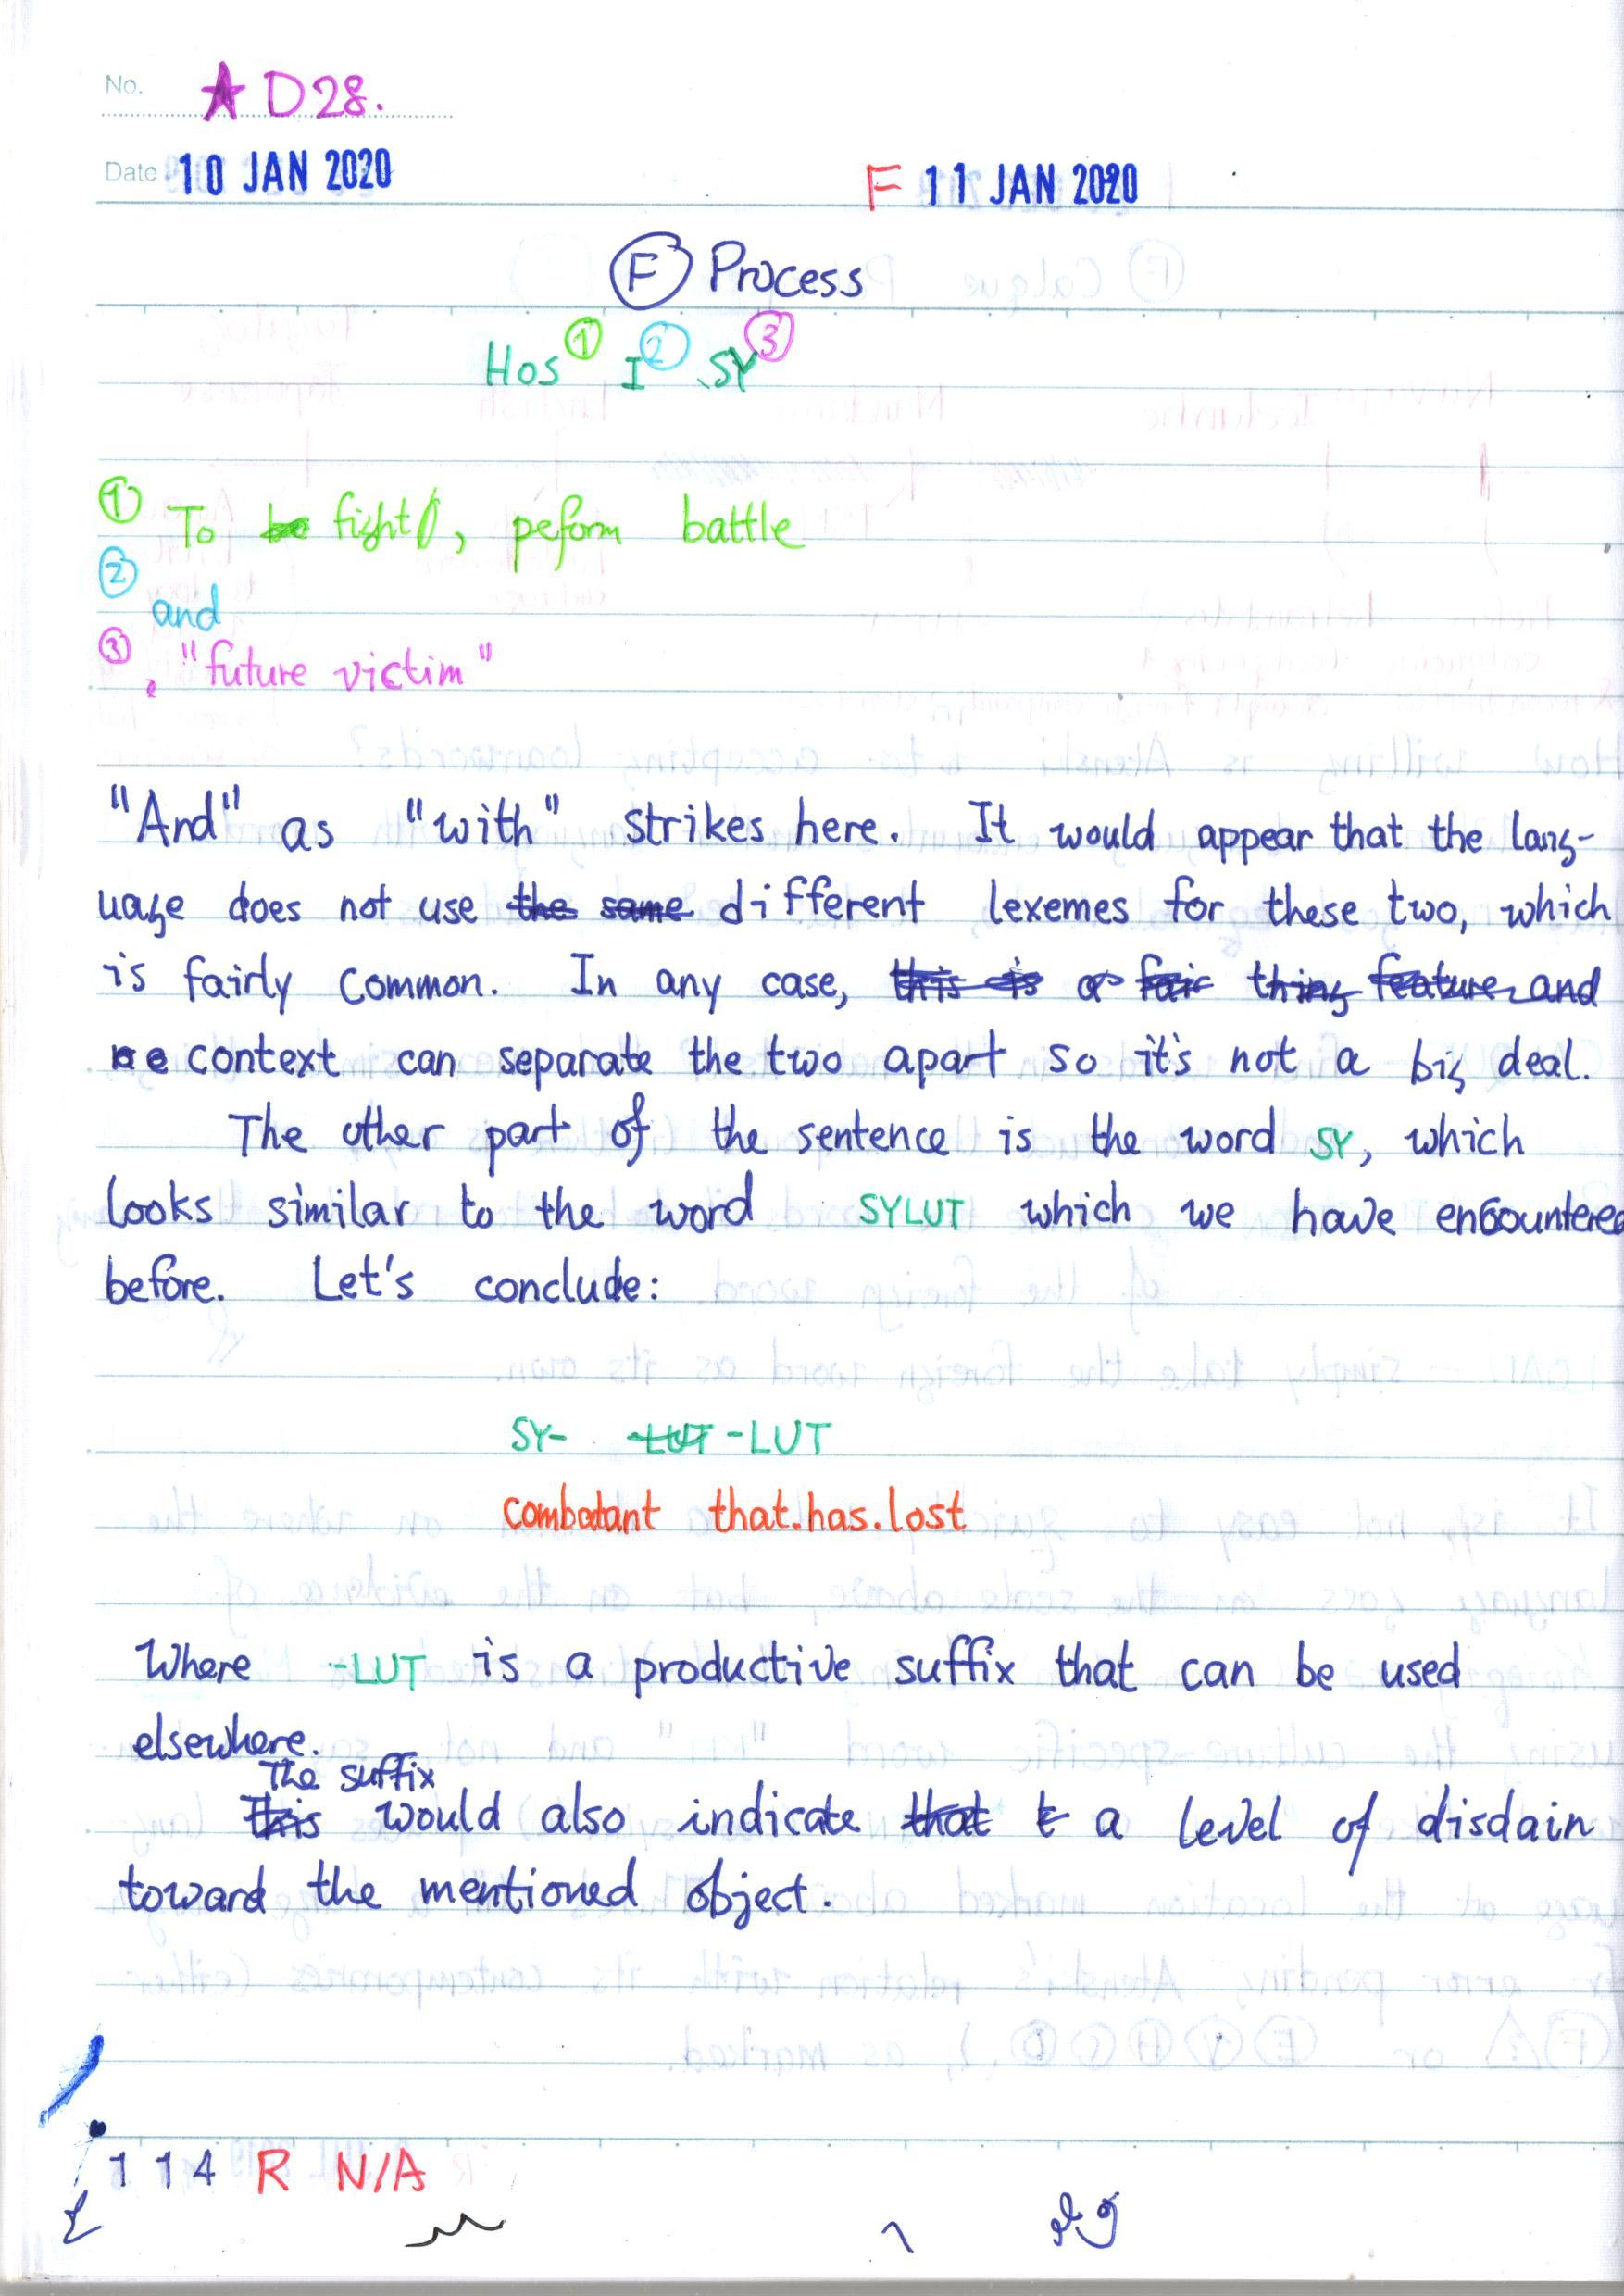 No. ★ D28.
Date 10 JAN 2020 F 11 JAN 2020
Ⓕ Process
Hos ① I ② SY ③
① To be fight, peform battle
②
and
③ "future victim"
"And" as "with" strikes here. It would appear that the lang-
uage does not use the same different lexemes for these two, which
is fairly common. In any case, this is a fair thing feature and
context can separate the two apart so it's not a big deal.
The other part of the sentence is the word SY, which
looks similar to the word SYLUT which we have encountered
before. Let's conclude:
SY- -LUT -LUT
combatant that.has.lost
Where -LUT is a productive suffix that can be used
elsewhere.
The suffix
This would also indicate that t a level of disdain
toward the mentioned object.
114 R N/A